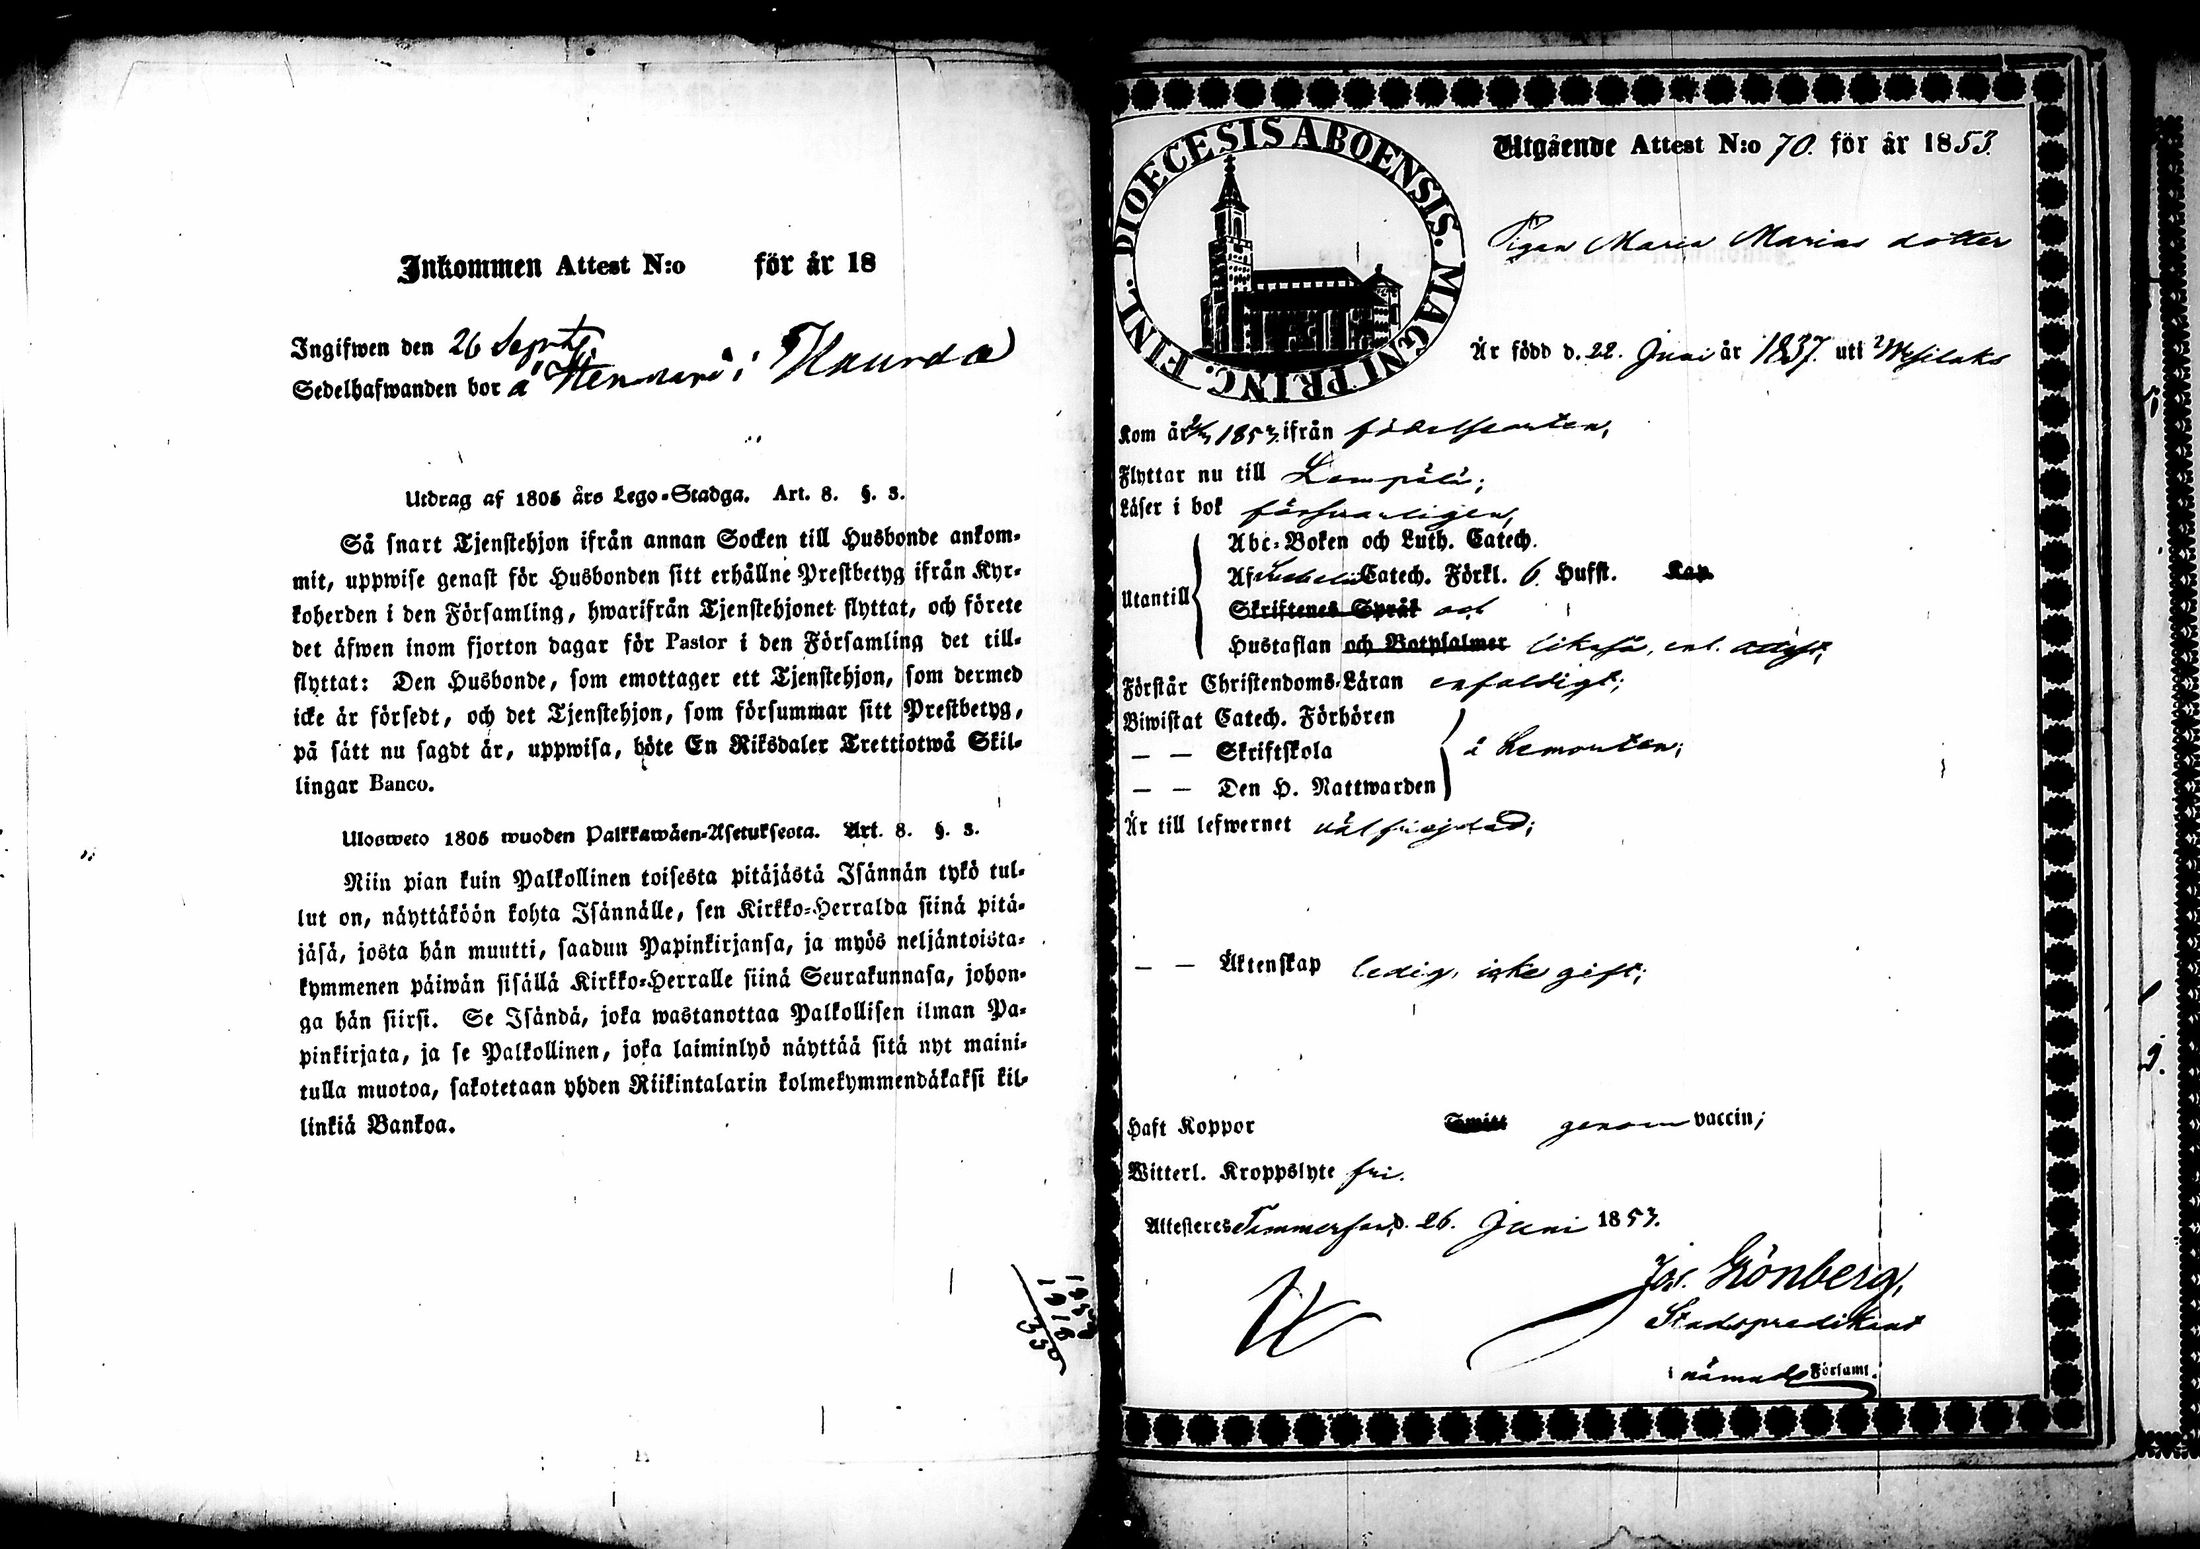 Inkommen Attest N:o för år 18
Ingifwen den 26 Sept.
Sedelhafwanden bor å i Haurala
Utdrag af 1805 års Lego-Stadga. Art. 8. §. 3.
Så snart Tjenstehjon ifrån annan Socken till Husbonde ankom-
mit, uppwise genast för Husbonden sitt erhållne Prestbetyg ifrån Kyr-
koherden i den Församling, hwarifrån Tjenstehjonet flyttat, och förete
det äfwen inom fjorton dagar för Pastor i den Församling det till-
flyttat: Den Husbonde, som emottager ett Tjenstehjon, som dermed
icke är försedt, och det Tjenstehjon, som försummar sitt Prestbetyg,
på sätt nu sagdt är, uppwisa, böte En Riksdaler Trettiotwå Skil-
lingar Banco.
Ulosweto 1805 wuoden Palkkawäen-Asetuksesta. Art. 8. §. 3.
Niin pian kuin Palkollinen toisesta pitäjästä Isännän tykö tul-
lut on, näyttäköön kohta Isännälle, sen Kirkko-Herralda siinä pitä-
jäsä, josta hän muutti, saadun Papinkirjansa, ja myös neljäntoista-
kymmenen päiwän sisällä Kirkko-Herralle siinä Seurakunnasa, johon-
ga hän siirsi. Se Isändä, joka wastanottaa Palkollisen ilman Pa-
pinkirjata, ja se Palkollinen, joka laiminlyö näyttää sitä nyt maini-
tulla muotoa, sakotetaan yhden Riikintalarin kolmekymmendäkaksi kil-
linkiä Bankoa.
DIOECESIS ABOENSIS. MAGNI PRINC. FINL.
Utgående Attest N:o 70. för år 1853.
Pigan Maria Marias dotter
Är född d. 22. Juni år 1837. uti Wesilaks
Kom år 1853 ifrån födelseorten,
Flyttar nu till Lempälä;
Läser i bok försvarligen,
Utantill
Abc-Boken och Luth. Catech.
Af Catech. Förkl. 6. Hufst. Kap.
Skriftenes Språk och
Hustaflan och Botpsalmer likaså, enl. attest;
Förstår Christendoms-Läran enfaldigt;
Biwistat Catech. Förhören
— — Skriftskola
å hemorten;
— — Den H. Nattwarden
Är till lefwernet välfrejdad;
— — Äktenskap ledig, icke gift;
Haft Koppor genom vaccin;
Witterl. Kroppslyte fri.
Attesteres Tammerfors, d. 26. Juni 1853.
Jos. Grönberg,
Stadspredikant
i nämnde Församl.